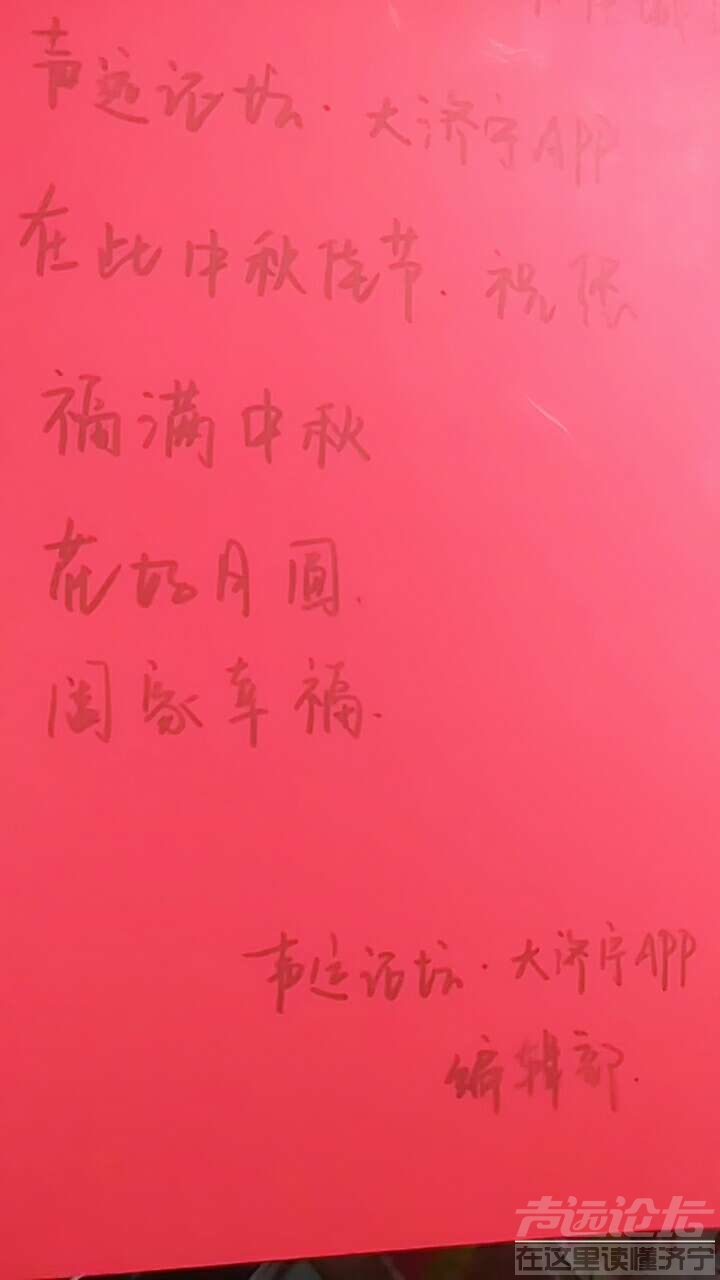 声远论坛·大济宁APP
在此中秋佳节.祝您
福满中秋
花好月圆.
阖家幸福.
声远论坛·大济宁APP
编辑部.
声远论坛
在这里读懂济宁